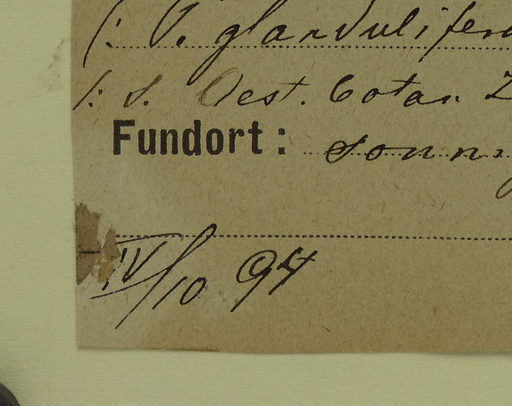 (: V. glandulifera
/: s. Oest. botan. Z
Fundort: sonni
IV/10 94